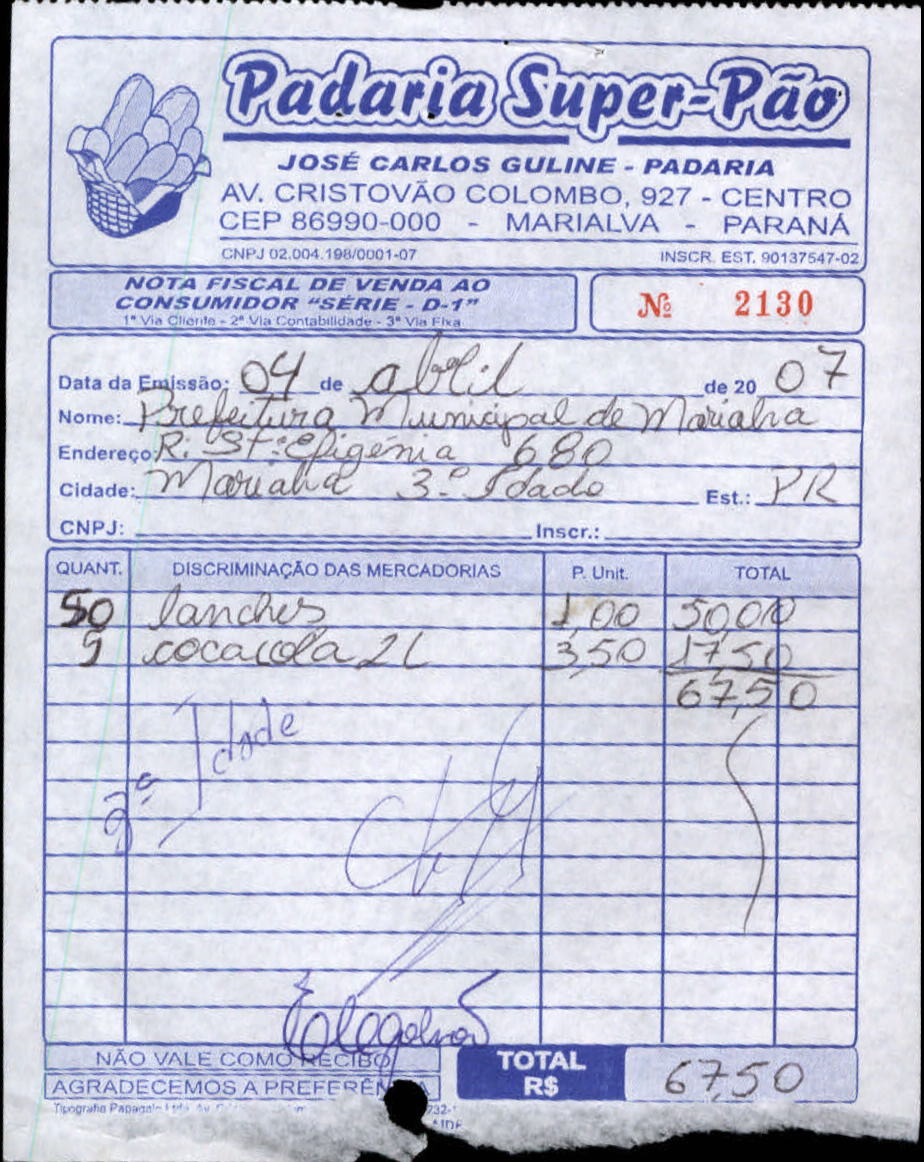 Padaria Super-Pão
JOSÉ CARLOS GULINE - PADARIA
AV. CRISTOVÃO COLOMBO, 927 - CENTRO
CEP 86990-000 - MARIALVA - PARANÁ
CNPJ 02.004.198/0001-07 INSCR. EST. 90137547-02
NOTA FISCAL DE VENDA AO
CONSUMIDOR "SÉRIE - D-1"
1ª Via Cliente - 2ª Via Contabilidade - 3ª Via Fixa
Nº 2130
Data da Emissão: 04 de abril de 20 07
Nome: Prefeitura Municipal de Marialva
Endereço: R. Stª Efigênia 680
Cidade: Marialva 3ª Idade Est.: PR
CNPJ: Inscr.:
QUANT. DISCRIMINAÇÃO DAS MERCADORIAS P. Unit. TOTAL
50 lanches 1,00 50,00
5 coca cola 2L 3,50 17,50
67,50
3ª Idade
NÃO VALE COMO RECIBO
AGRADECEMOS A PREFERÊNCIA
TOTAL
R$ 67,50
Tipografia Papagaio Ltda. Av.